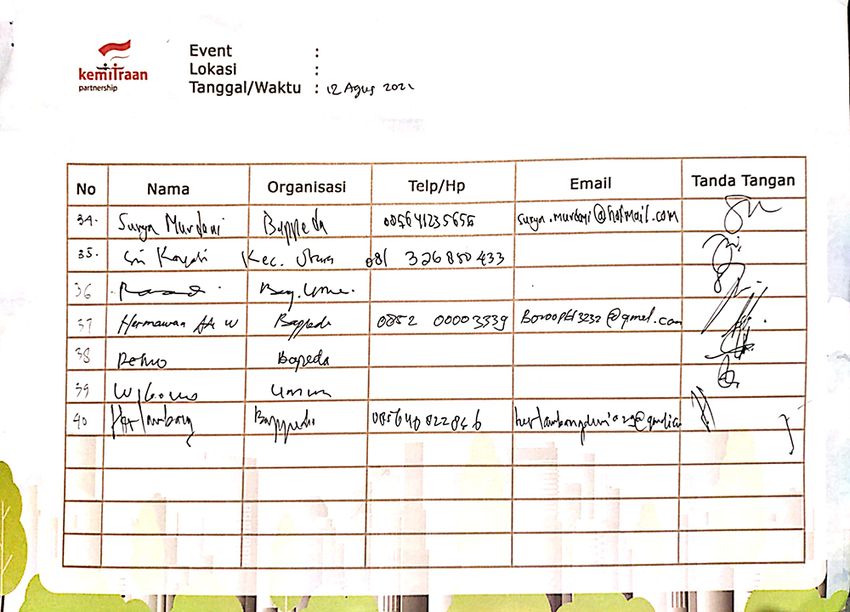 kemitraan
partnership
Event :
Lokasi :
Tanggal/Waktu : 12 Agus 2021
No Nama Organisasi Telp/Hp Email Tanda Tangan
34. Surya Murdani Bappeda 085641235655 surya.murdani@hotmail.com
35. Sri Kec. Utara 081 326850433
36 Bag. Umum.
37 Hermawan AA W Bappeda 0852 00003339
38 Retno Bapeda
39 Wibowo Umum
40 Hertambang Bappeda 085640822846